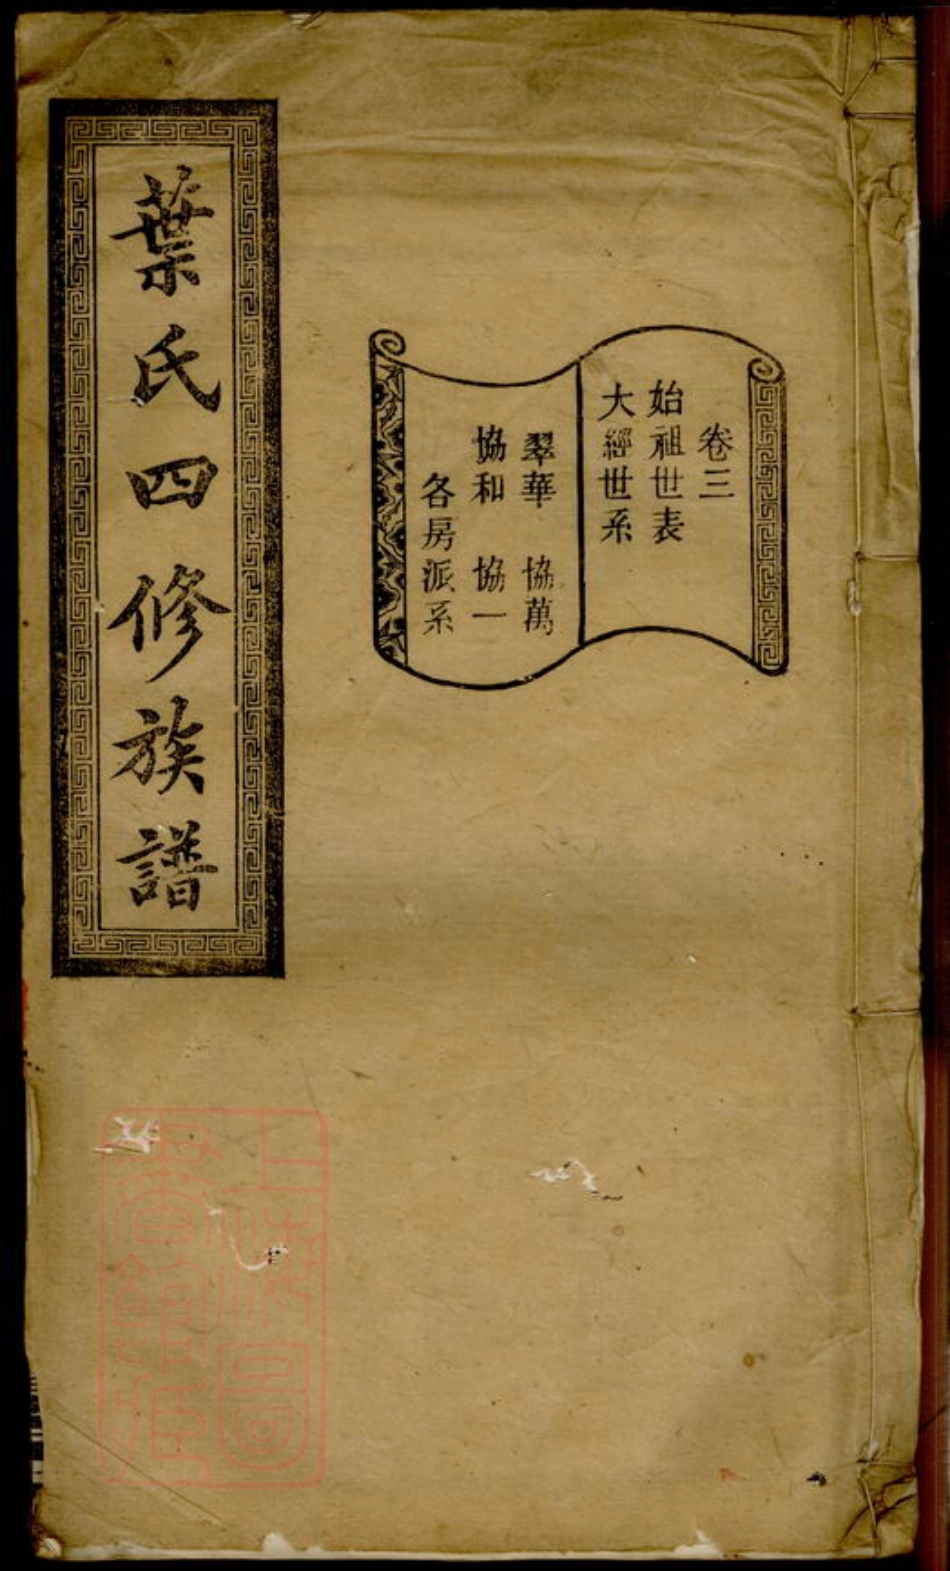 卷三
始祖世表
大經世系
翠華 協萬
協和 協一
各房派系
葉氏四修族譜
上海圖
書館藏